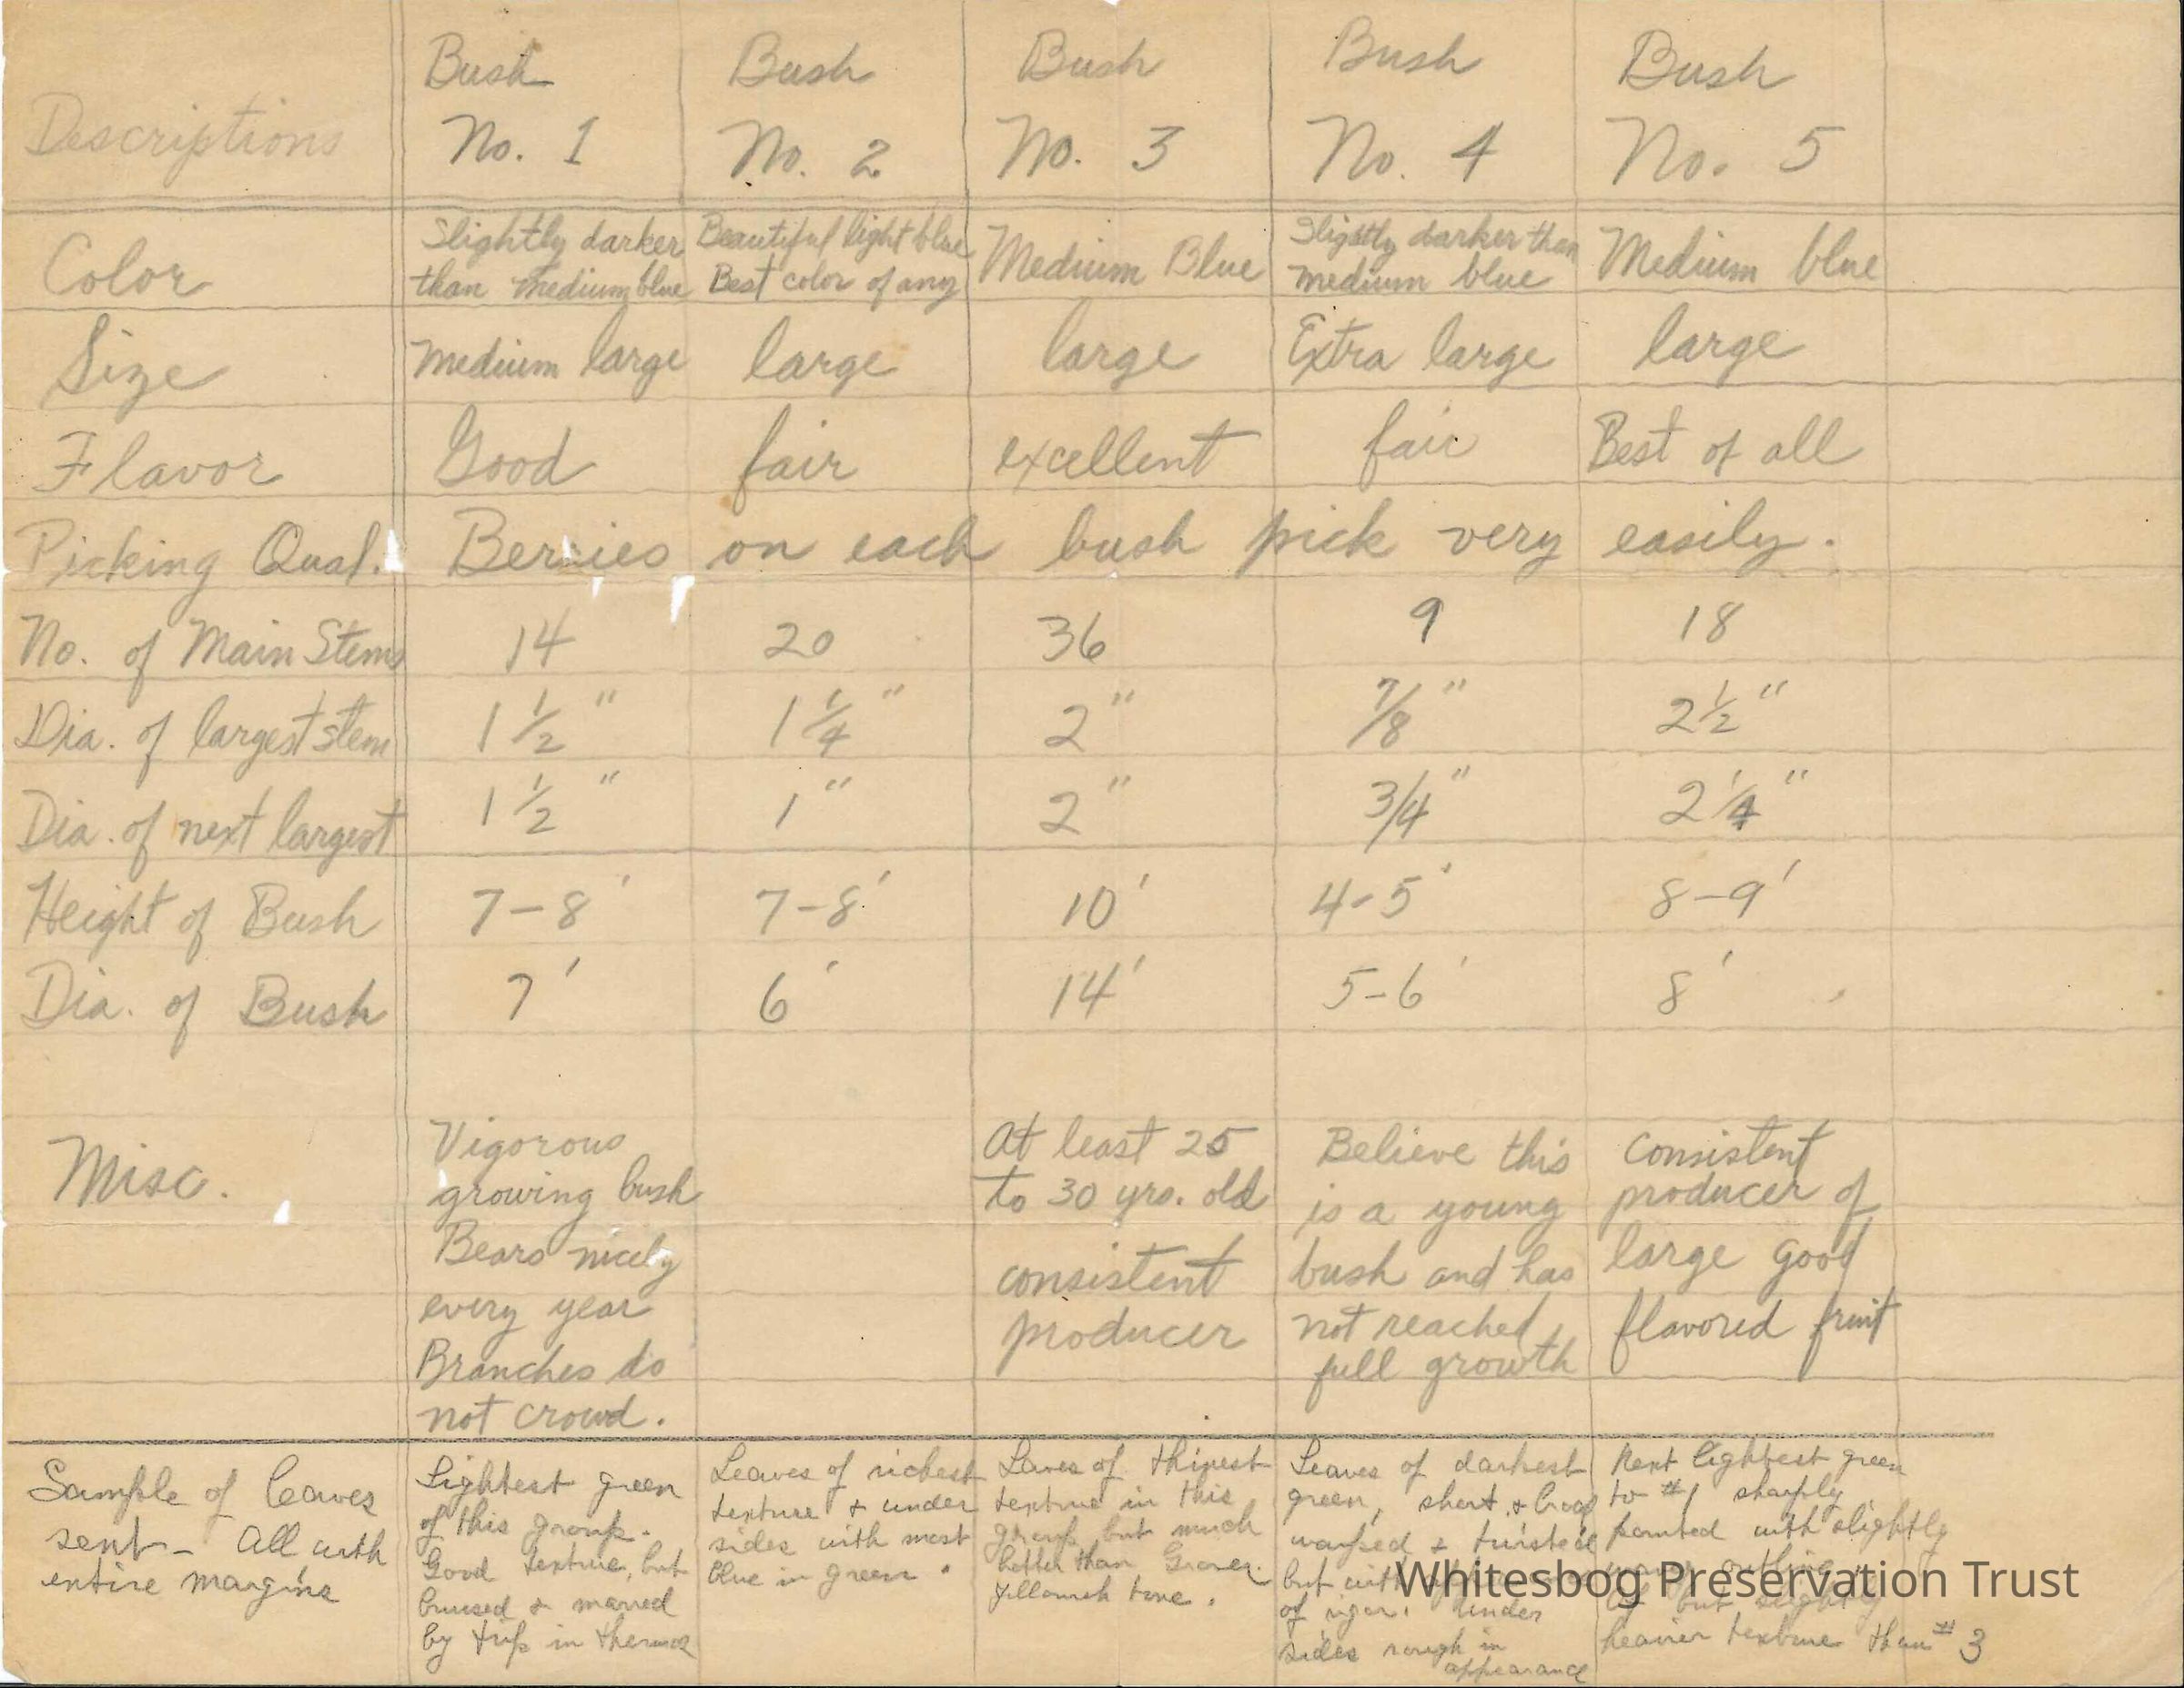 Bush Bush Bush Bush Bush
Descriptions No. 1 No. 2 No. 3 No. 4 No. 5
Color Slightly darker Beautiful light blue Medium Blue Slightly darker than Medium blue
than medium blue Best color of any medium blue
Size Medium large large large Extra large large
Flavor Good fair excellent fair Best of all
Picking Qual. Berries on each bush pick very easily.
No. of Main Stems 14 20 36 9 18
Dia. of largest stem 1 1/2" 1 1/4" 2" 7/8" 2 1/2"
Dia. of next largest 1 1/2" 1" 2" 3/4" 2 1/4"
Height of Bush 7-8' 7-8' 10' 4-5' 8-9'
Dia. of Bush 7' 6' 14' 5-6' 8'
Misc.
Vigorous
growing bush
Bears nicely
every year
Branches do
not crowd.
At least 25
to 30 yrs. old
consistent
producer
Believe this
is a young
bush and has
not reached
full growth
Consistent
producer of
large good
flavored fruit
Sample of leaves
sent - All with
entire margins
Lightest green
of this group.
Good texture, but
bruised & marred
by trip in thermos
Leaves of richest
texture & under
sides with most
blue in green.
Leaves of thinest
texture in this
group but much
better than Grover.
Yellowish tone.
Leaves of darkest
green, short & broad
warped & twisted
but with
of vigor. Under
sides rough in
appearance
Next lightest green
to #1 sharply
pointed with slightly
wavy outline
but slightly
heavier texture than #3
Whitesbog Preservation Trust